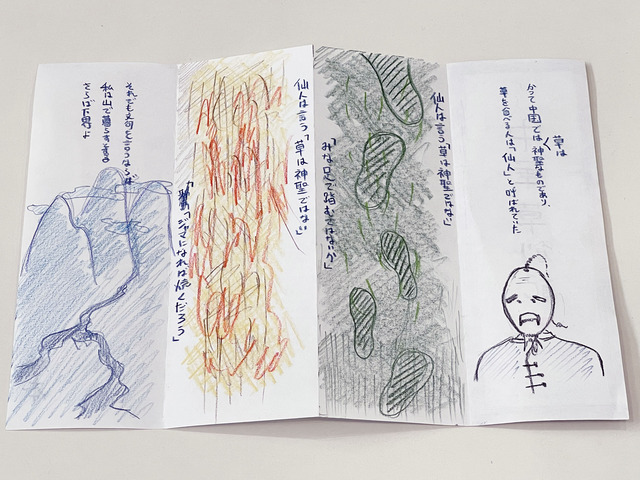 草は
かつて中国では神聖なものであり、
草を食べる人は「仙人」と呼ばれていた
仙人は言う「草は神聖ではない」
「みな足で踏むではないか」
仙人は言う「草は神聖ではない」
「ジャマになれば焼くだろう」
それでも文句を言うならば
私は山で暮らす
さらば下界よ